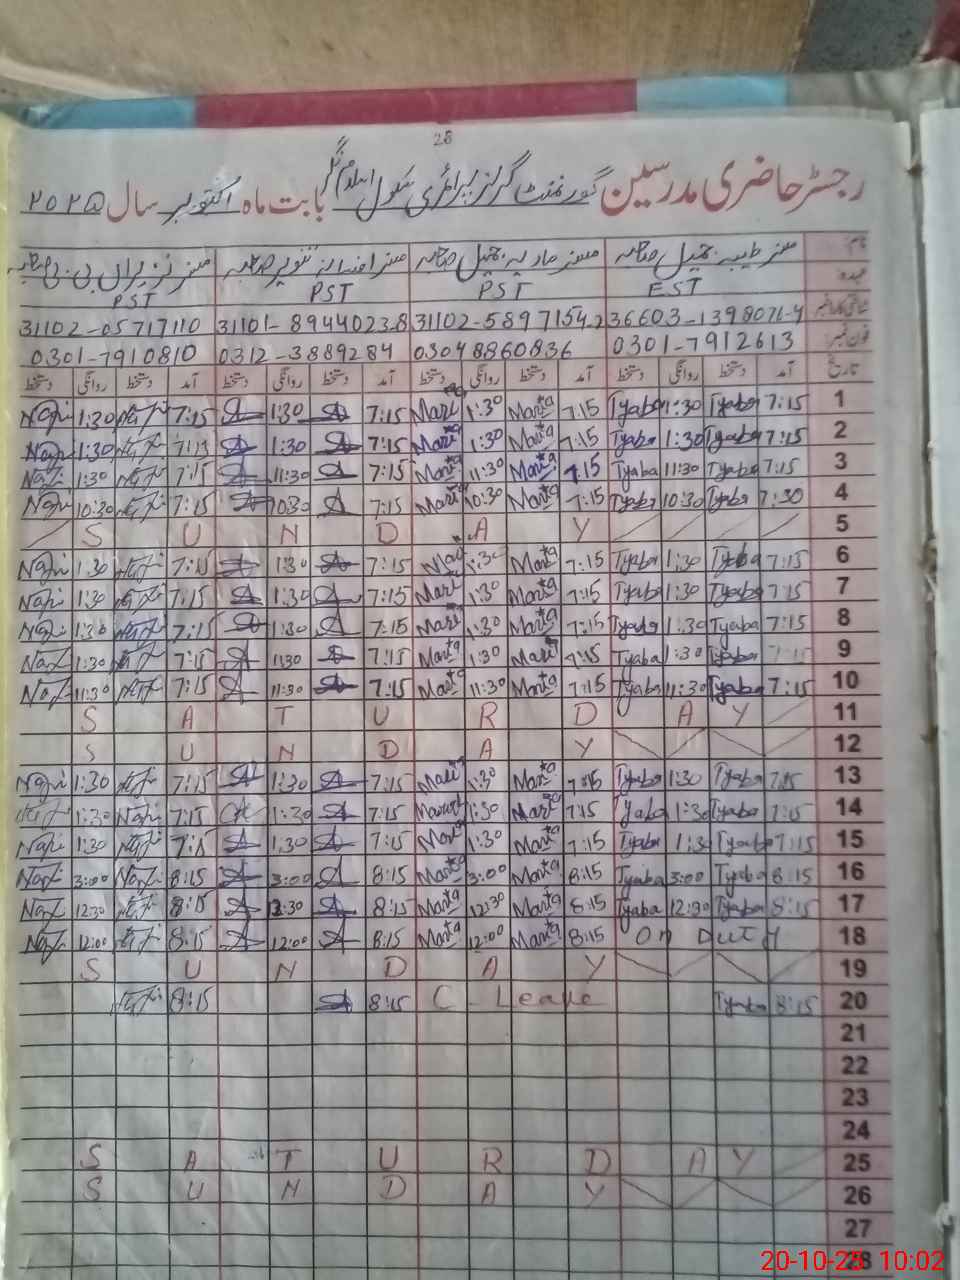 28
رجسٹر حاضری مدرسین گورنمنٹ گرلز پرائمری سکول اسلام نگر بابت ماہ اکتوبر سال ۲۰۲۵
نام: مسز طیبہ جمیل صاحبہ مسز ماریہ جمیل صاحبہ مسز افشانہ تنویر صاحبہ مسز نذیراں بی بی صاحبہ
عہدہ EST PST PST PST
شناختی کارڈ نمبر 36603-1398071-4 31102-5897154-2 31101-8944023-8 31102-0571711-0
فون نمبر: 0301-7912613 03048860836 0312-3889284 0301-7910810
تاریخ آمد دستخط روانگی دستخط آمد دستخط روانگی دستخط آمد دستخط روانگی دستخط آمد دستخط روانگی دستخط
1 7:15 Tyaba 1:30 Tyaba 7:15 Maria 1:30 Maria 7:15 1:30 7:15 1:30
2 7:15 Tyaba 1:30 Tyaba 7:15 Maria 1:30 Maria 7:15 1:30 7:15 1:30
3 7:15 Tyaba 11:30 Tyaba 7:15 Maria 11:30 Maria 7:15 11:30 7:15 1:30
4 7:30 Tyaba 10:30 Tyaba 7:15 Maria 10:30 Maria 7:15 10:30 7:15 10:30
5 S U N D A Y
6 7:15 Tyaba 1:30 Tyaba 7:15 Maria 1:30 7:15 1:30 7:15 1:30
7 7:15 Tyaba 1:30 Tyaba 7:15 Maria 1:30 Maria 7:15 1:30 7:15 1:30
8 7:15 Tyaba 1:30 Tyaba 7:15 Maria 1:30 Maria 7:15 1:30 7:15 1:30
9 7:15 Tyaba 1:30 Tyaba 7:15 Maria 1:30 Maria 7:15 1:30 7:15 1:30
10 7:15 Tyaba 11:30 Tyaba 7:15 Maria 11:30 Maria 7:15 11:30 7:15 11:30
11 S A T U R D A Y
12 S U N D A Y
13 7:15 Tyaba 1:30 Tyaba 7:15 Maria 1:30 Maria 7:15 1:30 7:15 1:30
14 7:15 Tyaba 1:30 Tyaba 7:15 Maria 1:30 7:15 1:30 7:15 1:30
15 7:15 Tyaba 1:3 Tyaba 7:15 Maria 1:30 Maria 7:15 1:30 7:15 1:30
16 8:15 Tyaba 3:00 Tyaba 8:15 Maria 3:00 Maria 8:15 3:00 8:15 3:00
17 8:15 Tyaba 12:30 Tyaba 8:15 Maria 12:30 Maria 8:15 12:30 8:15 12:30
18 On Duty 8:15 Maria 12:00 Maria 8:15 12:00 8:15 12:00
19 S U N D A Y
20 8:15 Tyaba C - Leave 8:15 8:15
21
22
23
24
25 S A T U R D A Y
26 S U N D A Y
27
28
20-10-25 10:02